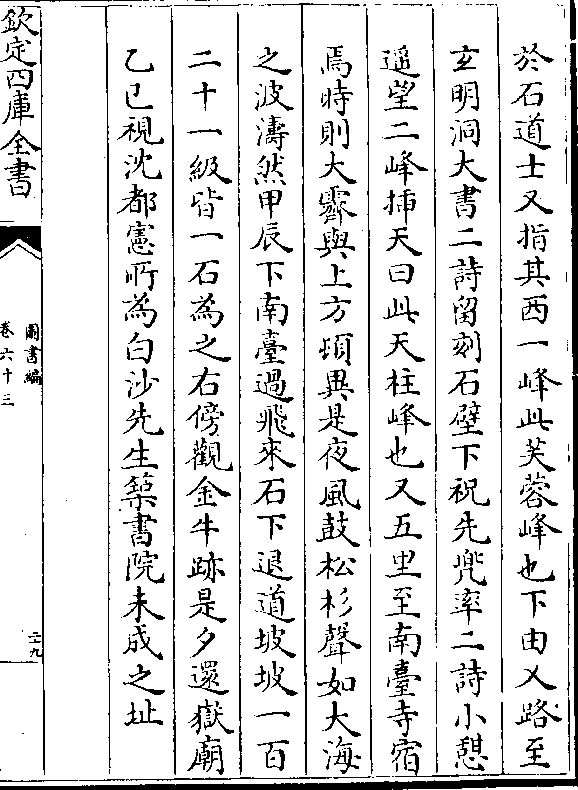 於石道士又指其西一峰此芙蓉峰也下由乂路至
玄明洞大書二詩留刻石壁下祝先兠率二詩小憇
遥望二峰揷天曰此天柱峰也又五里至南臺寺宿
焉時則大霽與上方頃異是夜風鼓松杉聲如大海
之波濤然甲辰下南臺過飛來石下退道坡坡一百
二十一級皆一石為之右傍觀金牛跡是夕還嶽廟
乙巳視沈都憲所為白沙先生築書院未成之址
欽定四庫全書
圖書編
卷六十三
二九